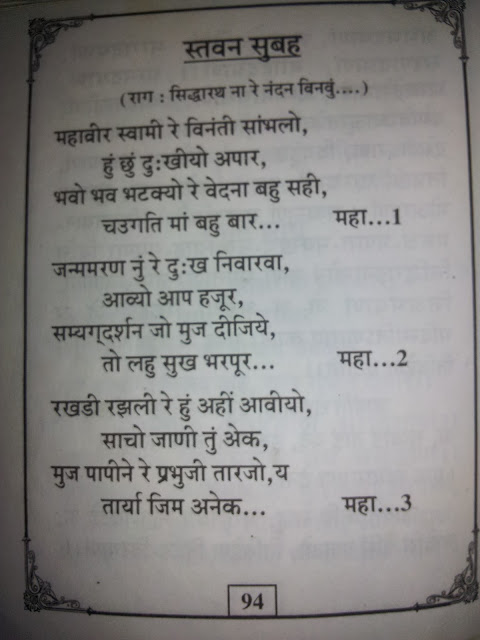 स्तवन सुबह
(राग : सिद्धारथ ना रे नंदन विनवुं....)
महावीर स्वामी रे विनंती सांभलो,
हुं छुं दुःखीयो अपार,
भवो भव भटक्यो रे वेदना बहु सही,
चउगति मां बहु बार... महा...1
जन्ममरण नुं रे दुःख निवारवा,
आव्यो आप हजूर,
सम्यग्दर्शन जो मुज दीजिये,
तो लहु सुख भरपूर... महा...2
रखडी रझली रे हुं अहीं आवीयो,
साचो जाणी तुं अेक,
मुज पापीने रे प्रभुजी तारजो,य
तार्या जिम अनेक... महा...3
94